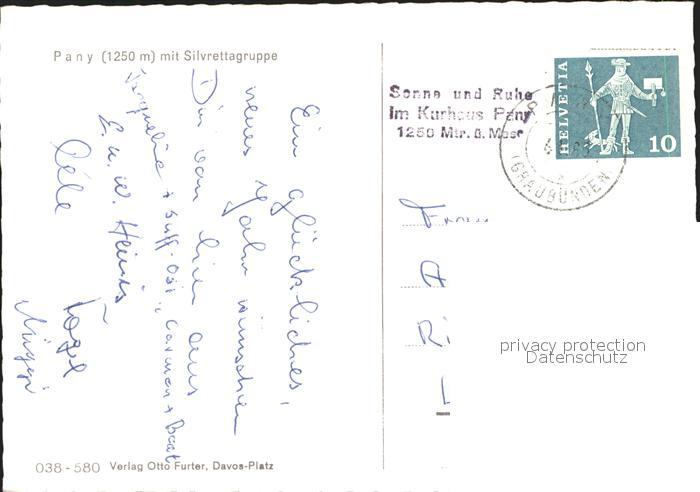 Pany (1250 m) mit Silvrettagruppe
Ein glückliches,
neues Jahr wünschen
Dir von hier aus
Jaqueline + Carmen + Beat
E. u. W. Heinis
Vogel
Sonne und Ruhe
im Kurhaus Pany
1250 Mtr. ü. Meer
HELVETIA
10
(GRAUBÜNDEN)
privacy protection
Datenschutz
038 - 580 Verlag Otto Furter, Davos-Platz